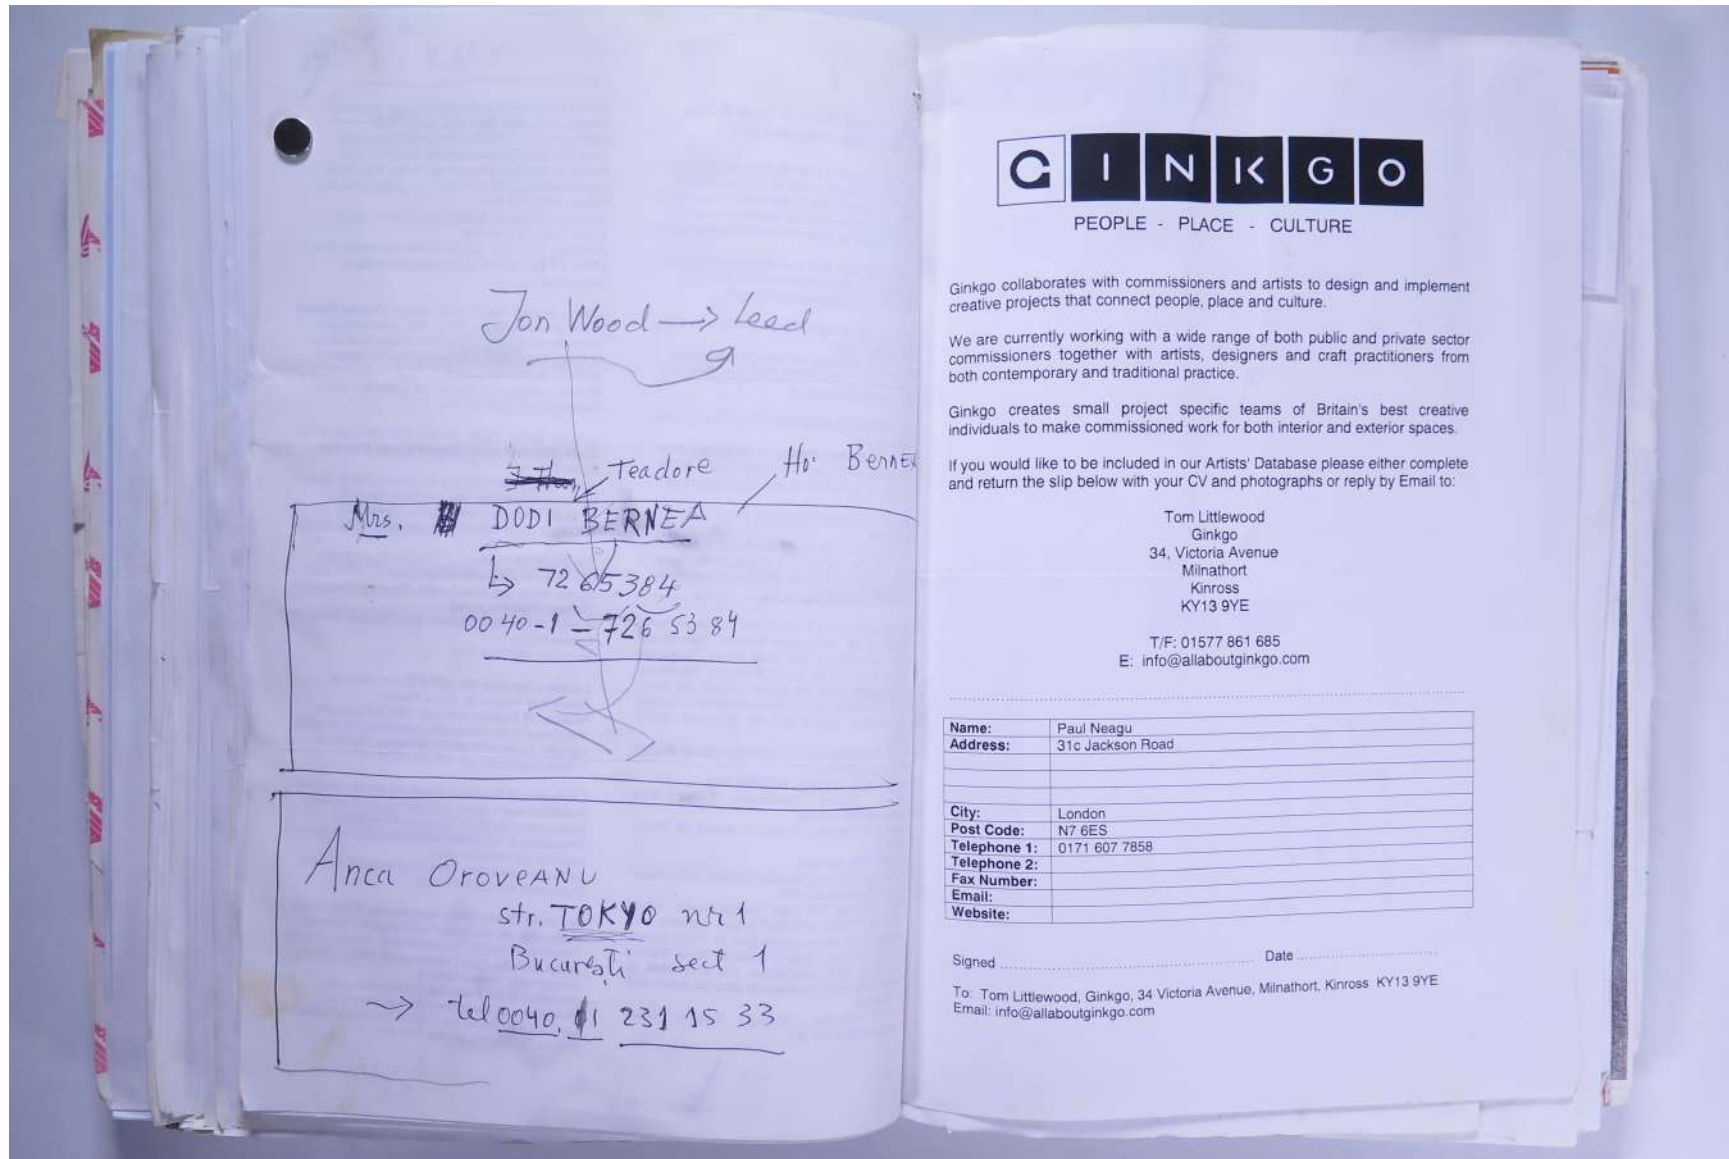 Jon Wood → Lead
Teadore
Ho. Bernea
Mrs. DODI BERNEA
↳ 72 65384
0040-1-726 53 84
Anca OroveANU
str. TOKYO nr 1
București sect 1
→ tel 0040. 1 231 15 33
GINKGO
PEOPLE - PLACE - CULTURE
Ginkgo collaborates with commissioners and artists to design and implement
creative projects that connect people, place and culture.
We are currently working with a wide range of both public and private sector
commissioners together with artists, designers and craft practitioners from
both contemporary and traditional practice.
Ginkgo creates small project specific teams of Britain's best creative
individuals to make commissioned work for both interior and exterior spaces.
If you would like to be included in our Artists' Database please either complete
and return the slip below with your CV and photographs or reply by Email to:
Tom Littlewood
Ginkgo
34, Victoria Avenue
Milnathort
Kinross
KY13 9YE
T/F: 01577 861 685
E: info@allaboutginkgo.com
Name: Paul Neagu
Address: 31c Jackson Road
City: London
Post Code: N7 6ES
Telephone 1: 0171 607 7858
Telephone 2:
Fax Number:
Email:
Website:
Signed Date
To: Tom Littlewood, Ginkgo, 34 Victoria Avenue, Milnathort, Kinross KY13 9YE
Email: info@allaboutginkgo.com